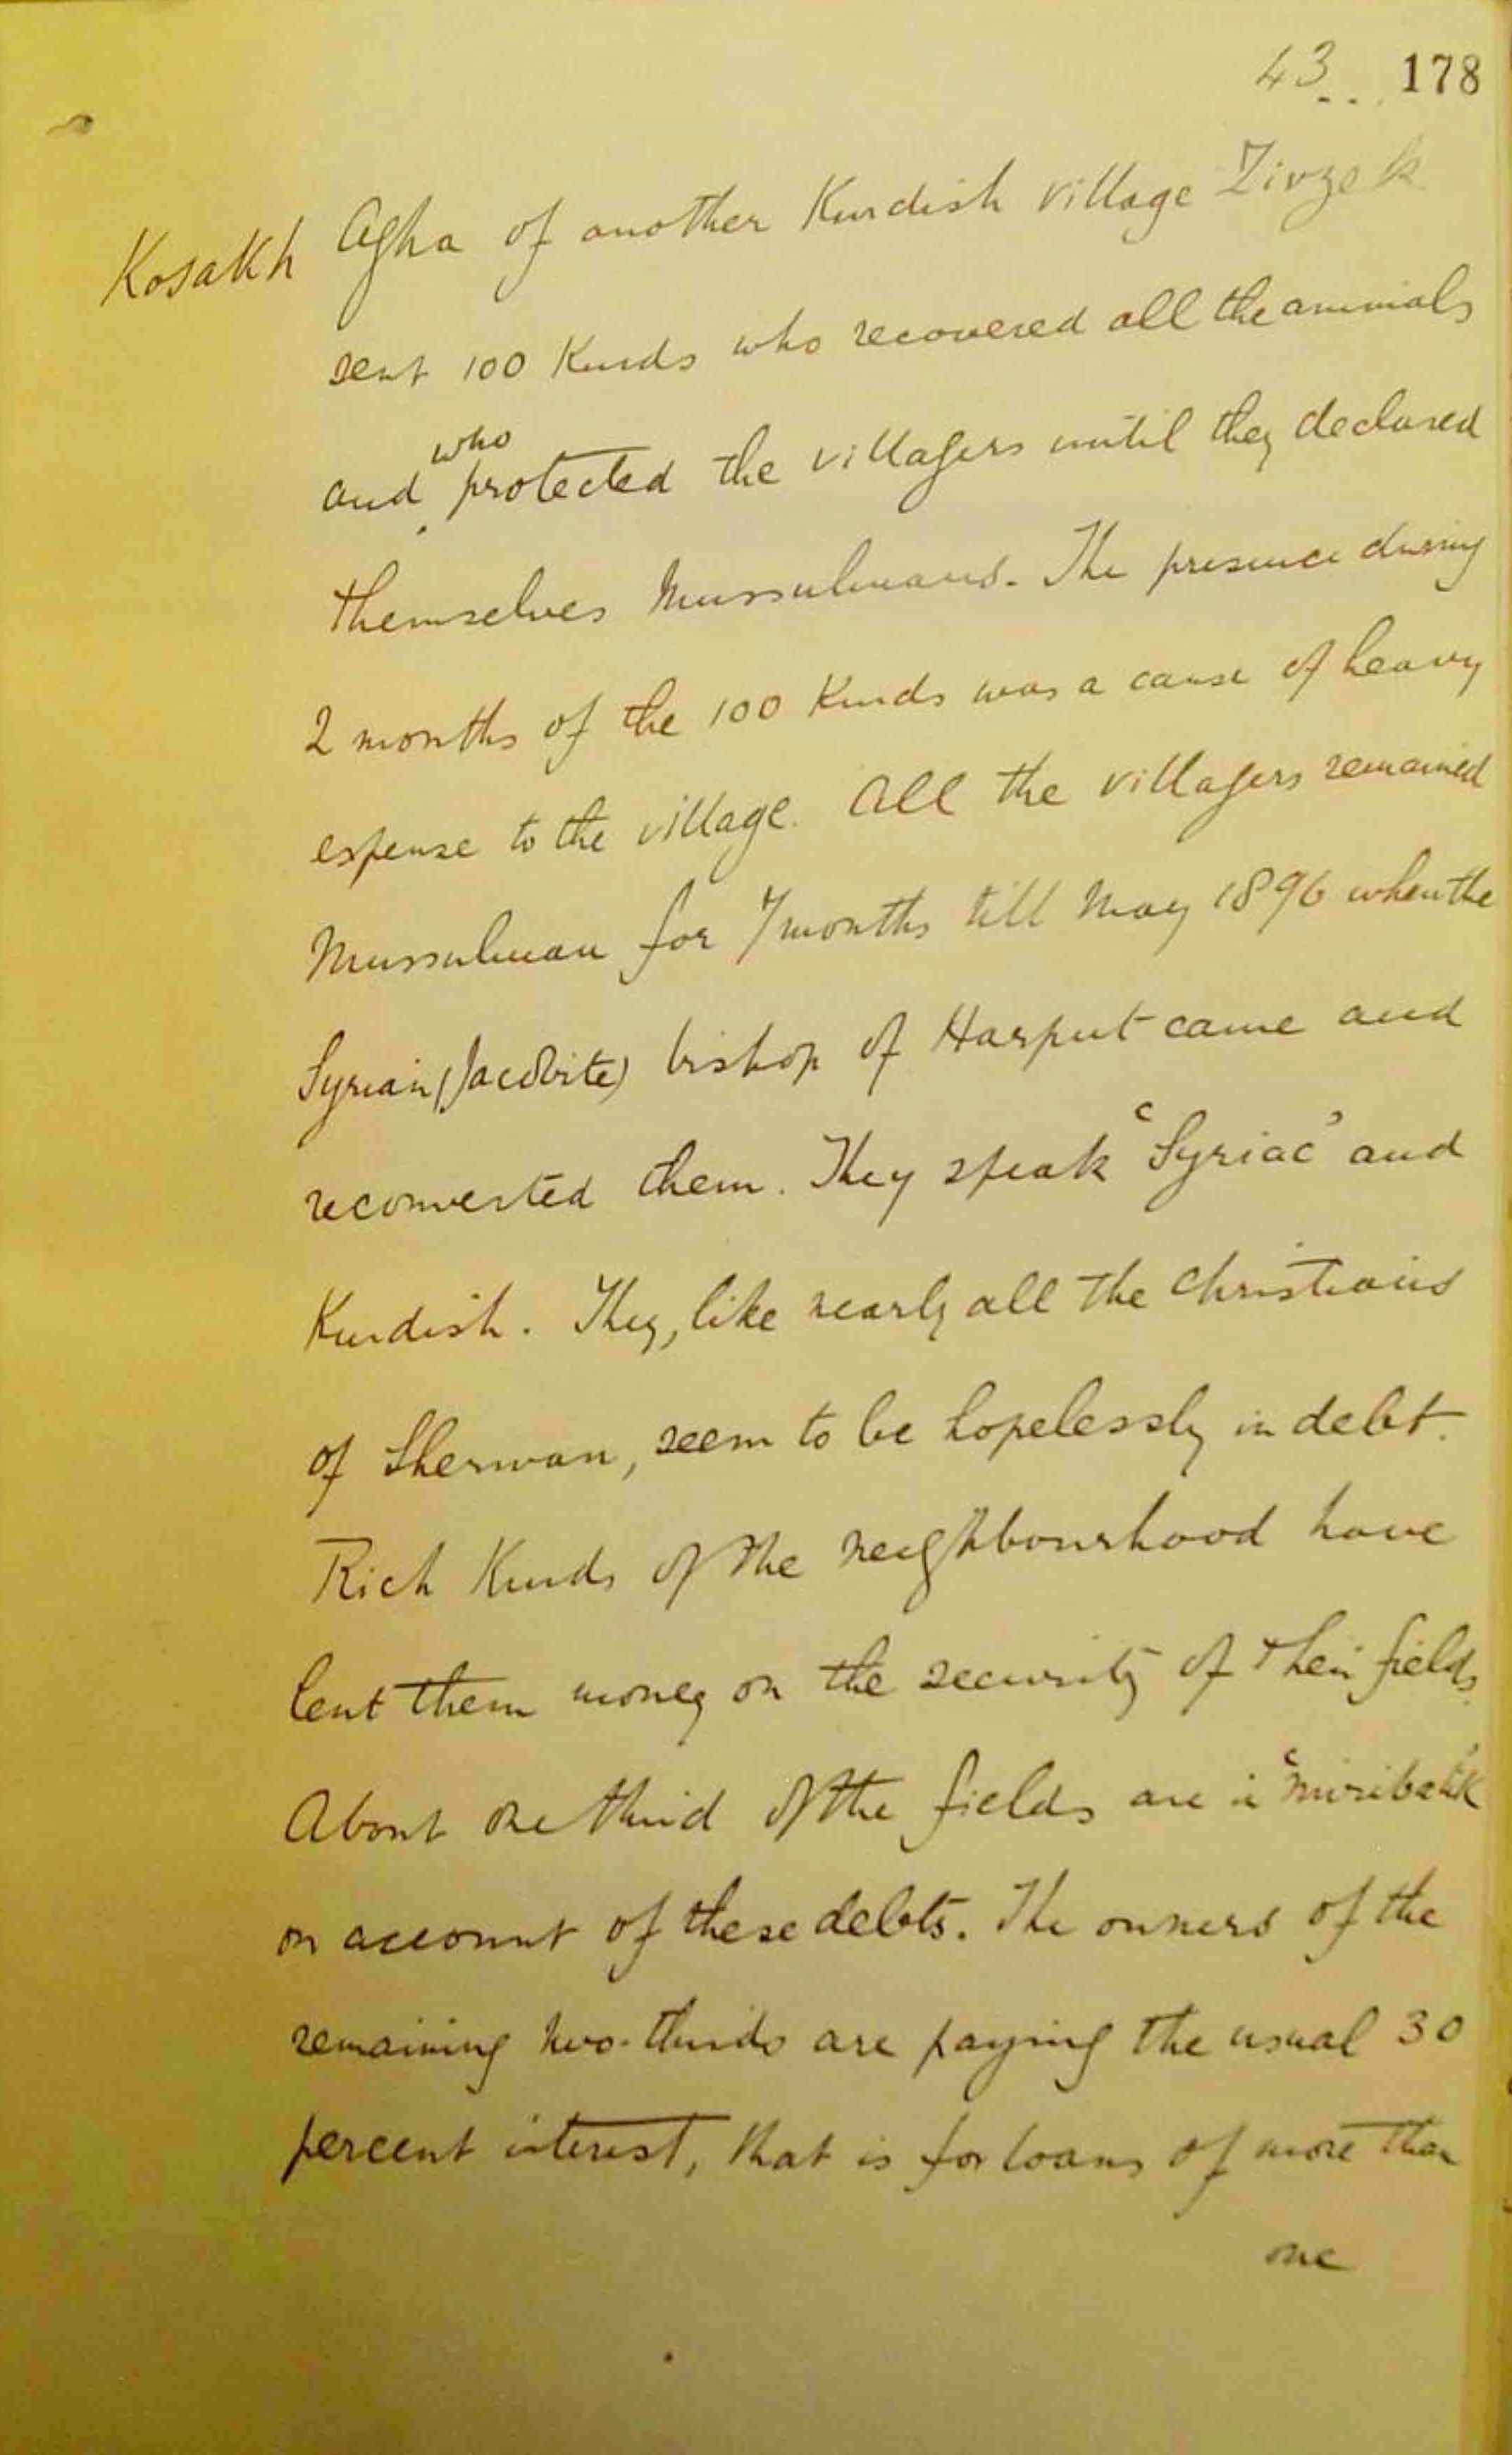 43.. 178
Kosakh Agha of another Kurdish village Zivzek
sent 100 Kurds who recovered all the animals
who
and protected the villagers until they declared
themselves Mussulmans. The presence during
2 months of the 100 Kurds was a cause of heavy
expense to the village. All the villagers remained
Mussulman for 7 months till May 1896 when the
Syrian (Jacobite) bishop of Harput came and
reconverted them. They speak 'Syriac' and
Kurdish. They, like nearly all the Christians
of Sherwan, seem to be hopelessly in debt.
Rich Kurds of the neighbourhood have
lent them money on the security of their fields
About one third of the fields are in
on account of these debts. The owners of the
remaining two-thirds are paying the usual 30
percent interest, that is for loans of more than
one